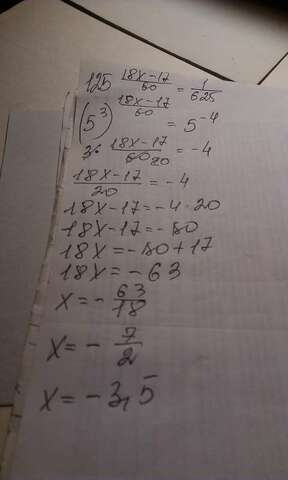 125^((18x-17)/60) = 1/625
(5^3)^((18x-17)/60) = 5^(-4)
3 · (18x-17)/60 20 = -4
(18x-17)/20 = -4
18x-17=-4·20
18x-17=-80
18x=-80+17
18x=-63
x=-63/18
x=-7/2
x=-3,5